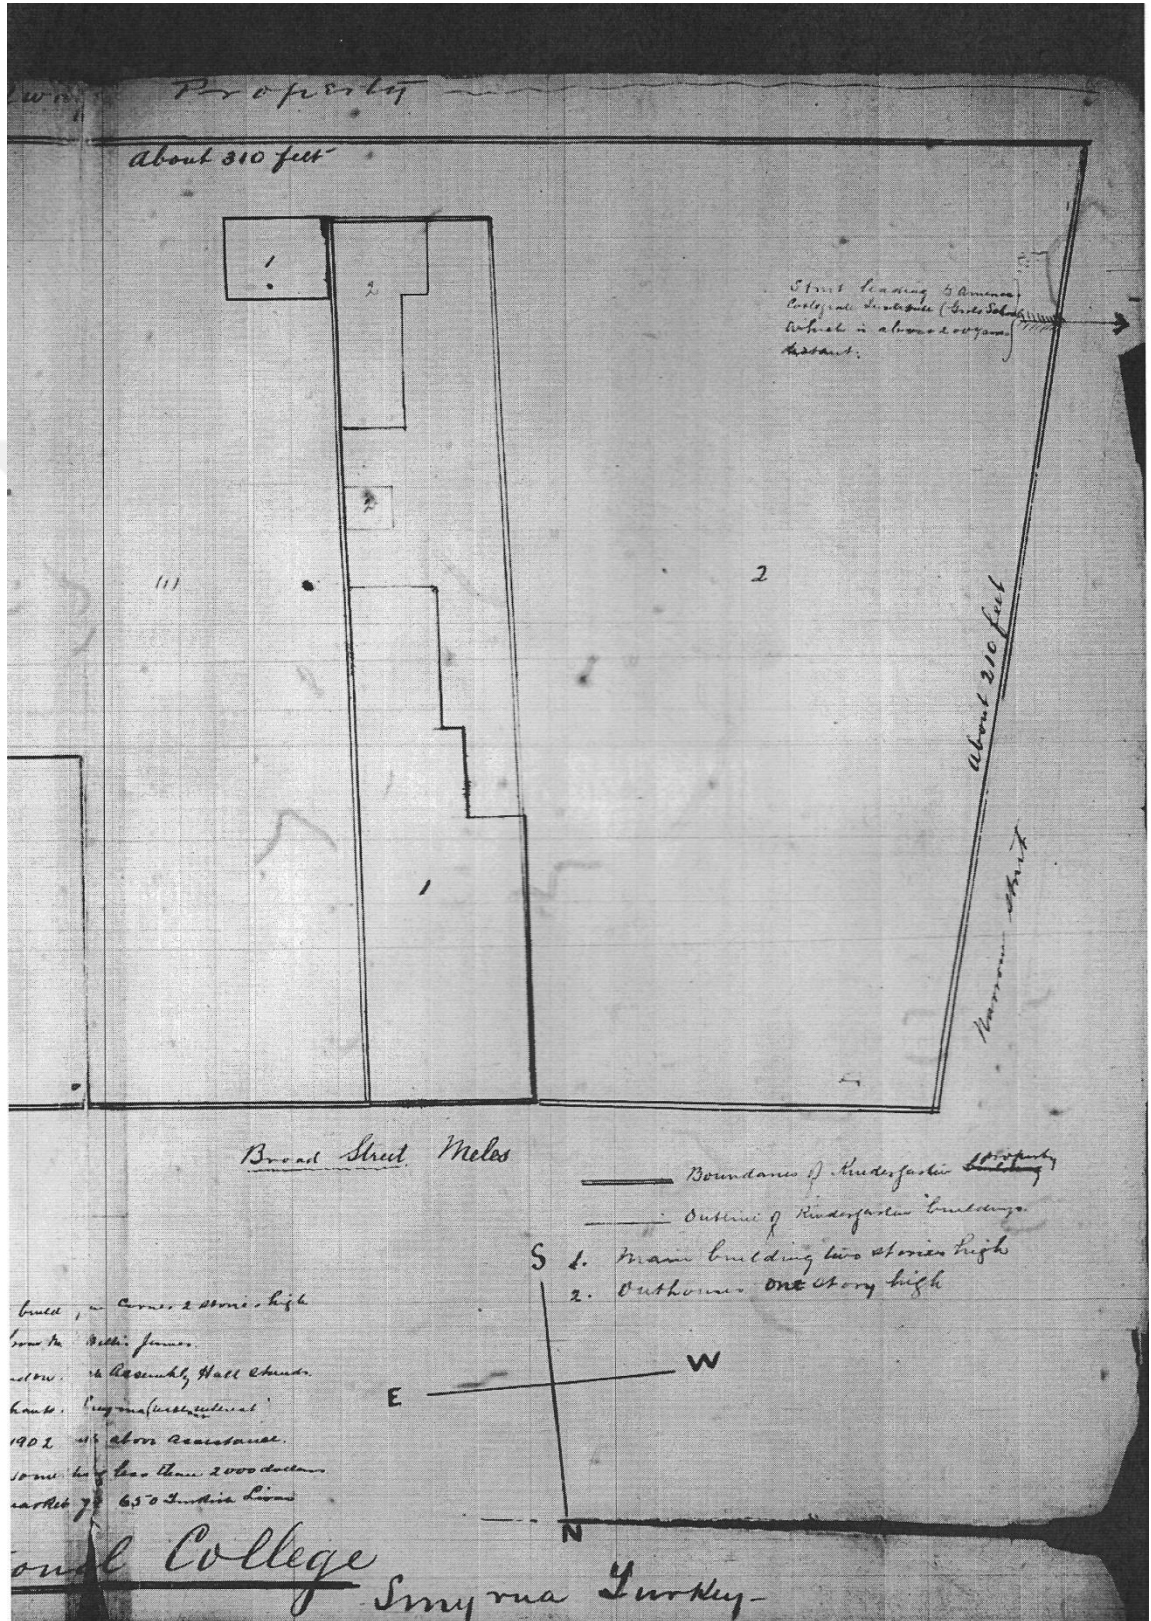 Property
About 310 feet
1
2
Street leading to American
Collegiate Institute (Girls School
Which is about 200 yards
distant.
2
111
2
About 210 feet
Narrow street
1
Broad Street Meles
Boundaries of Kindergarten building property
Outline of Kindergarten buildings
S
1. Main building two stories high
2. Outhouses one story high
build Corner 2 stories high
James.
Assembly Hall stands.
W
E
1902 above assistance.
less than 2000 dollars
650 Turkish Liras
N
onal College
Smyrna Turkey-